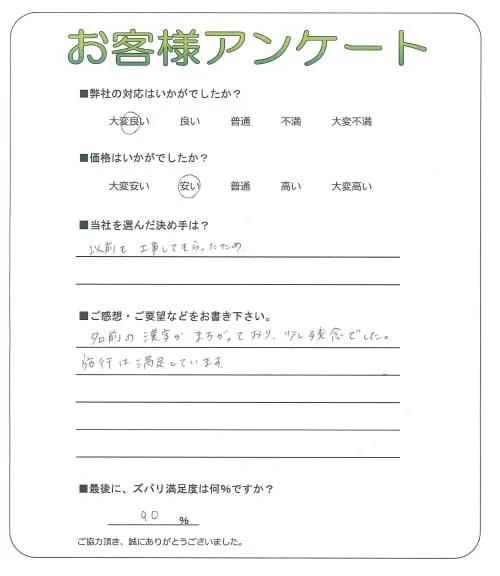 お客様アンケート
■弊社の対応はいかがでしたか？
大変良い 良い 普通 不満 大変不満
■価格はいかがでしたか？
大変安い 安い 普通 高い 大変高い
■当社を選んだ決め手は？
以前も工事してもらったため
■ご感想・ご要望などをお書き下さい。
名前の漢字がまちがっており、少し残念でした。
施行は満足しています
■最後に、ズバリ満足度は何％ですか？
90 %
ご協力頂き、誠にありがとうございました。